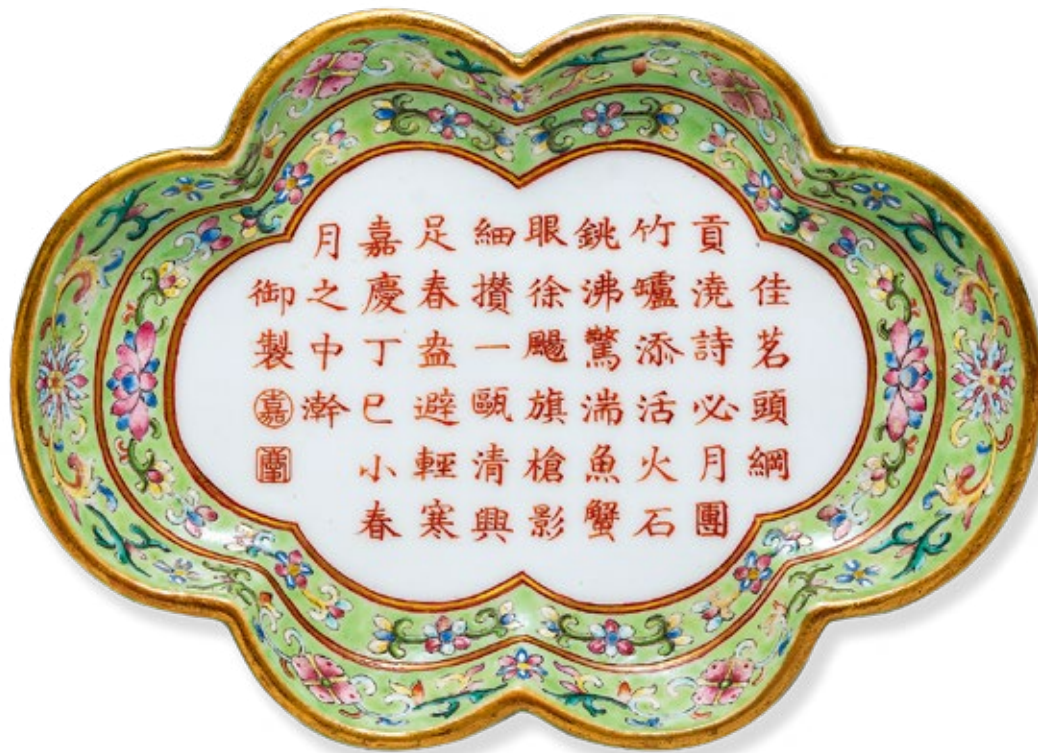 佳茗頭綱
貢澆詩必月團
竹罏添活火石
銚沸驚湍魚蟹
眼徐颺旗槍影
細攢一甌清興
足春盎避輕寒
嘉慶丁巳小春
月之中澣
御製
嘉